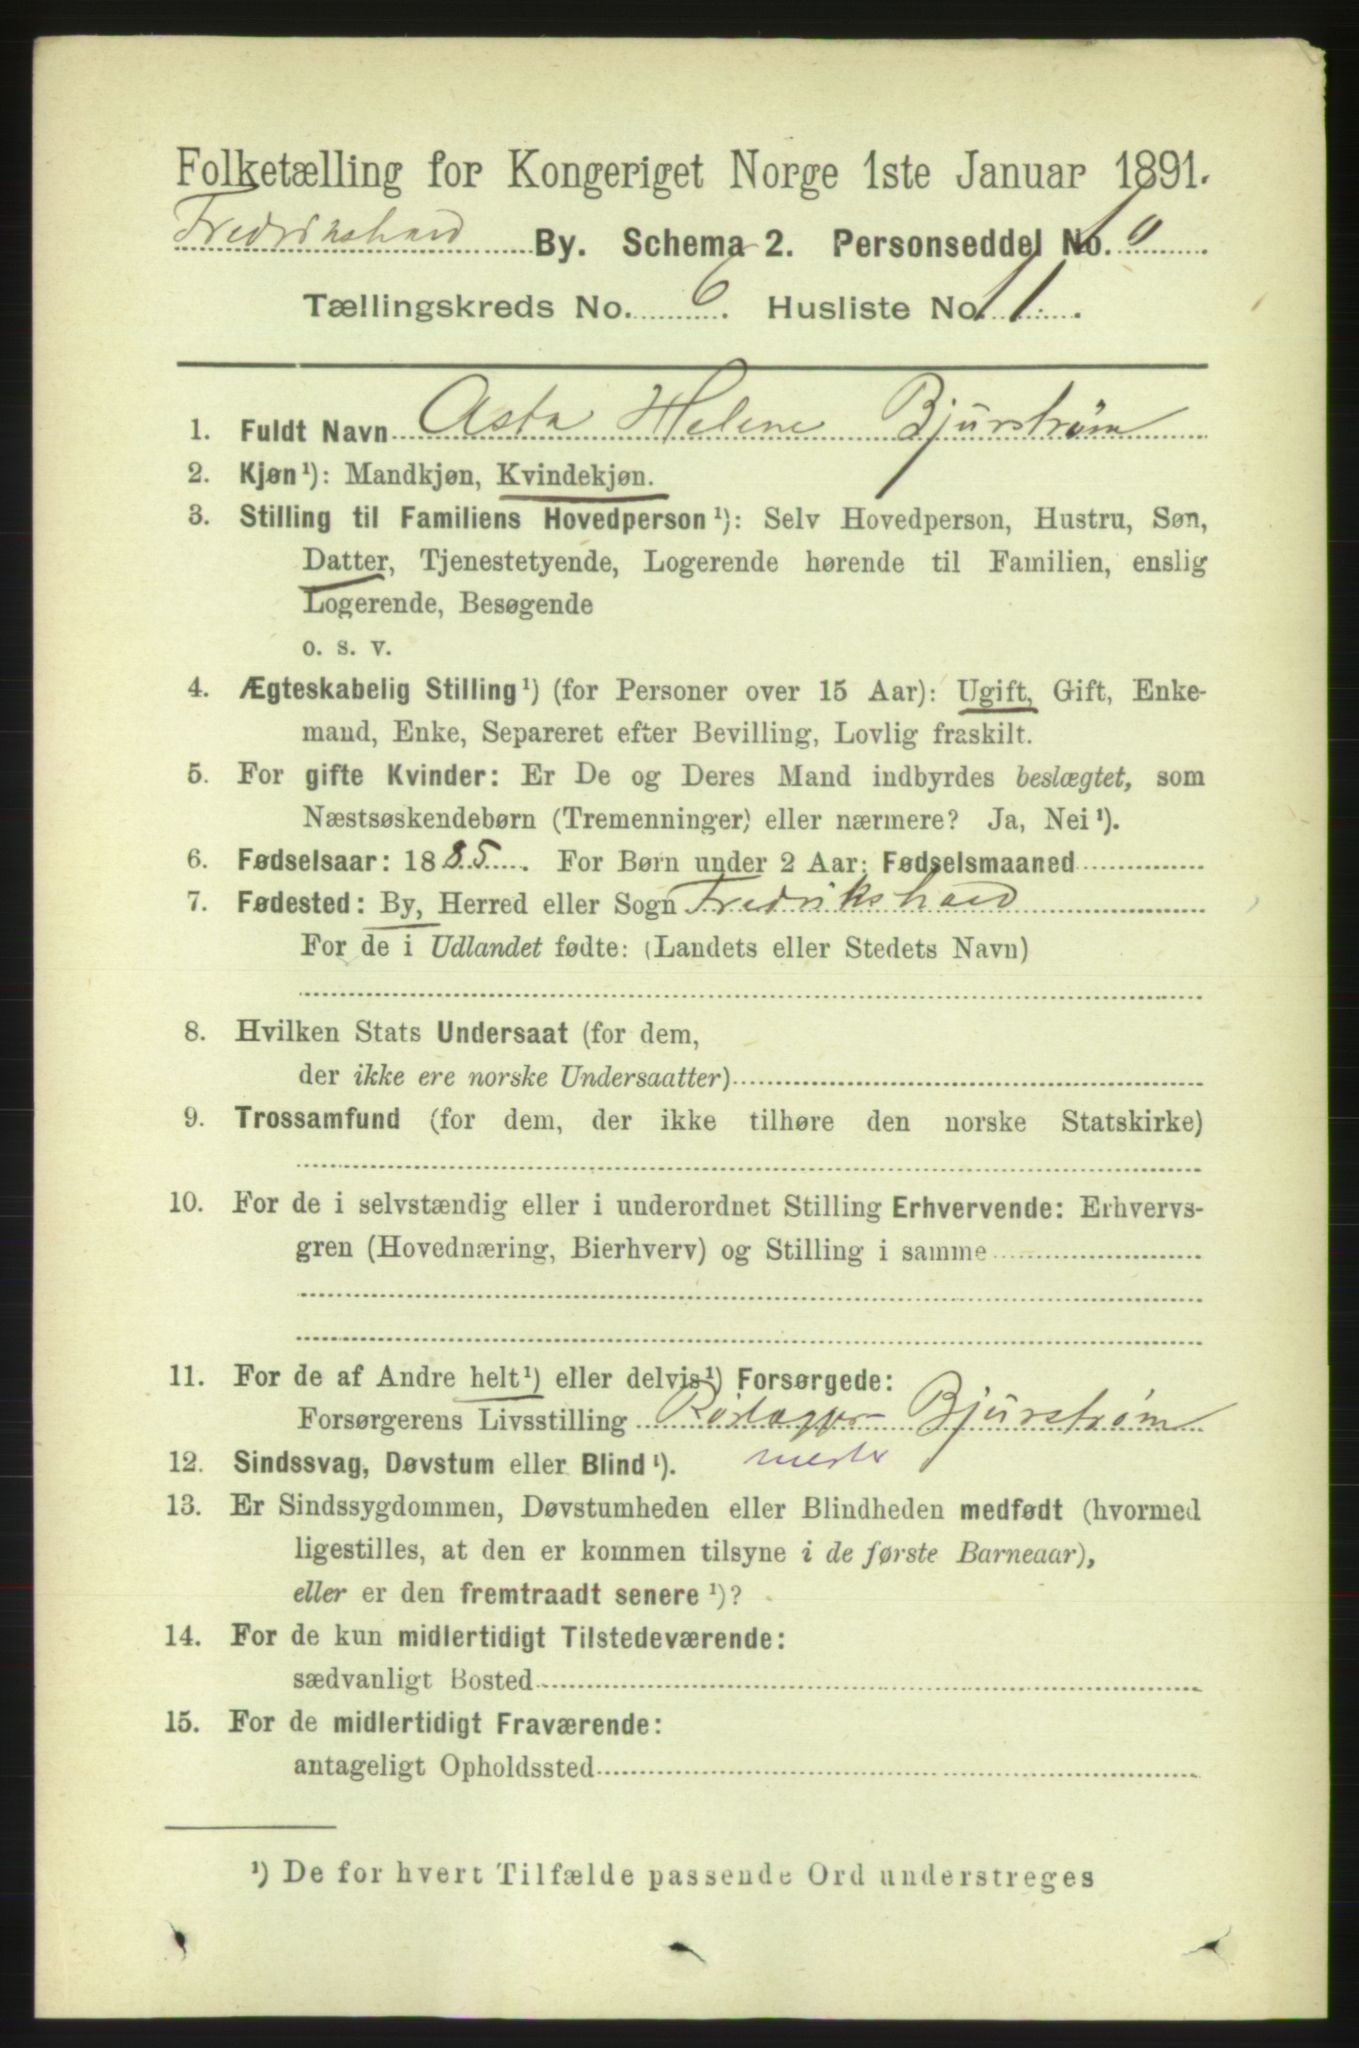 Folketælling for Kongeriget Norge 1ste Januar 1891.
Fredrikshald By. Schema 2. Personseddel No. 10
Tællingskreds No. 6. Husliste No. 11.
1. Fuldt Navn Asta Helene Bjurstrøm
2. Kjøn¹): Mandkjøn, Kvindekjøn.
3. Stilling til Familiens Hovedperson¹): Selv Hovedperson, Hustru, Søn,
Datter, Tjenestetyende, Logerende hørende til Familien, enslig
Logerende, Besøgende
o. s. v.
4. Ægteskabelig Stilling¹) (for Personer over 15 Aar): Ugift, Gift, Enke-
mand, Enke, Separeret efter Bevilling, Lovlig fraskilt.
5. For gifte Kvinder: Er De og Deres Mand indbyrdes beslægtet, som
Næstsøskendebørn (Tremenninger) eller nærmere? Ja, Nei¹).
6. Fødselsaar: 1885. For Børn under 2 Aar: Fødselsmaaned
7. Fødested: By, Herred eller Sogn Fredrikshald
For de i Udlandet fødte: (Landets eller Stedets Navn)
8. Hvilken Stats Undersaat (for dem,
der ikke ere norske Undersaatter)
9. Trossamfund (for dem, der ikke tilhøre den norske Statskirke)
10. For de i selvstændig eller i underordnet Stilling Erhvervende: Erhvervs-
gren (Hovednæring, Bierhverv) og Stilling i samme
11. For de af Andre helt¹) eller delvis¹) Forsørgede:
Forsørgerens Livsstilling Bjurstrøm
12. Sindssvag, Døvstum eller Blind¹).
13. Er Sindssygdommen, Døvstumheden eller Blindheden medfødt (hvormed
ligestilles, at den er kommen tilsyne i de første Barneaar),
eller er den fremtraadt senere¹)?
14. For de kun midlertidigt Tilstedeværende:
sædvanligt Bosted
15. For de midlertidigt Fraværende:
antageligt Opholdssted
¹) De for hvert Tilfælde passende Ord understreges